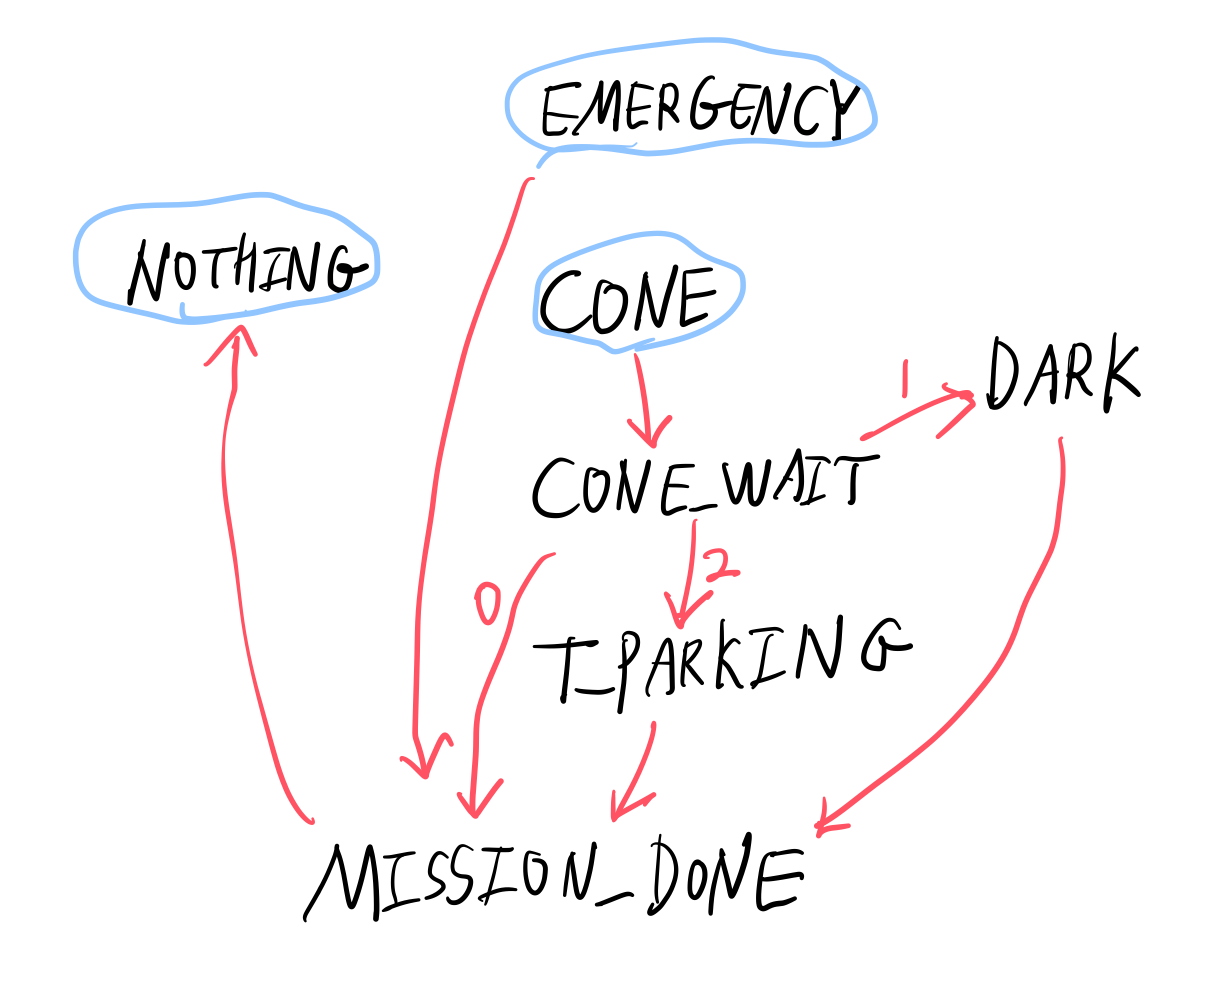 EMERGENCY
NOTHING
CONE
DARK
1
CONE_WAIT
0
2
T_PARKING
MISSION_DONE